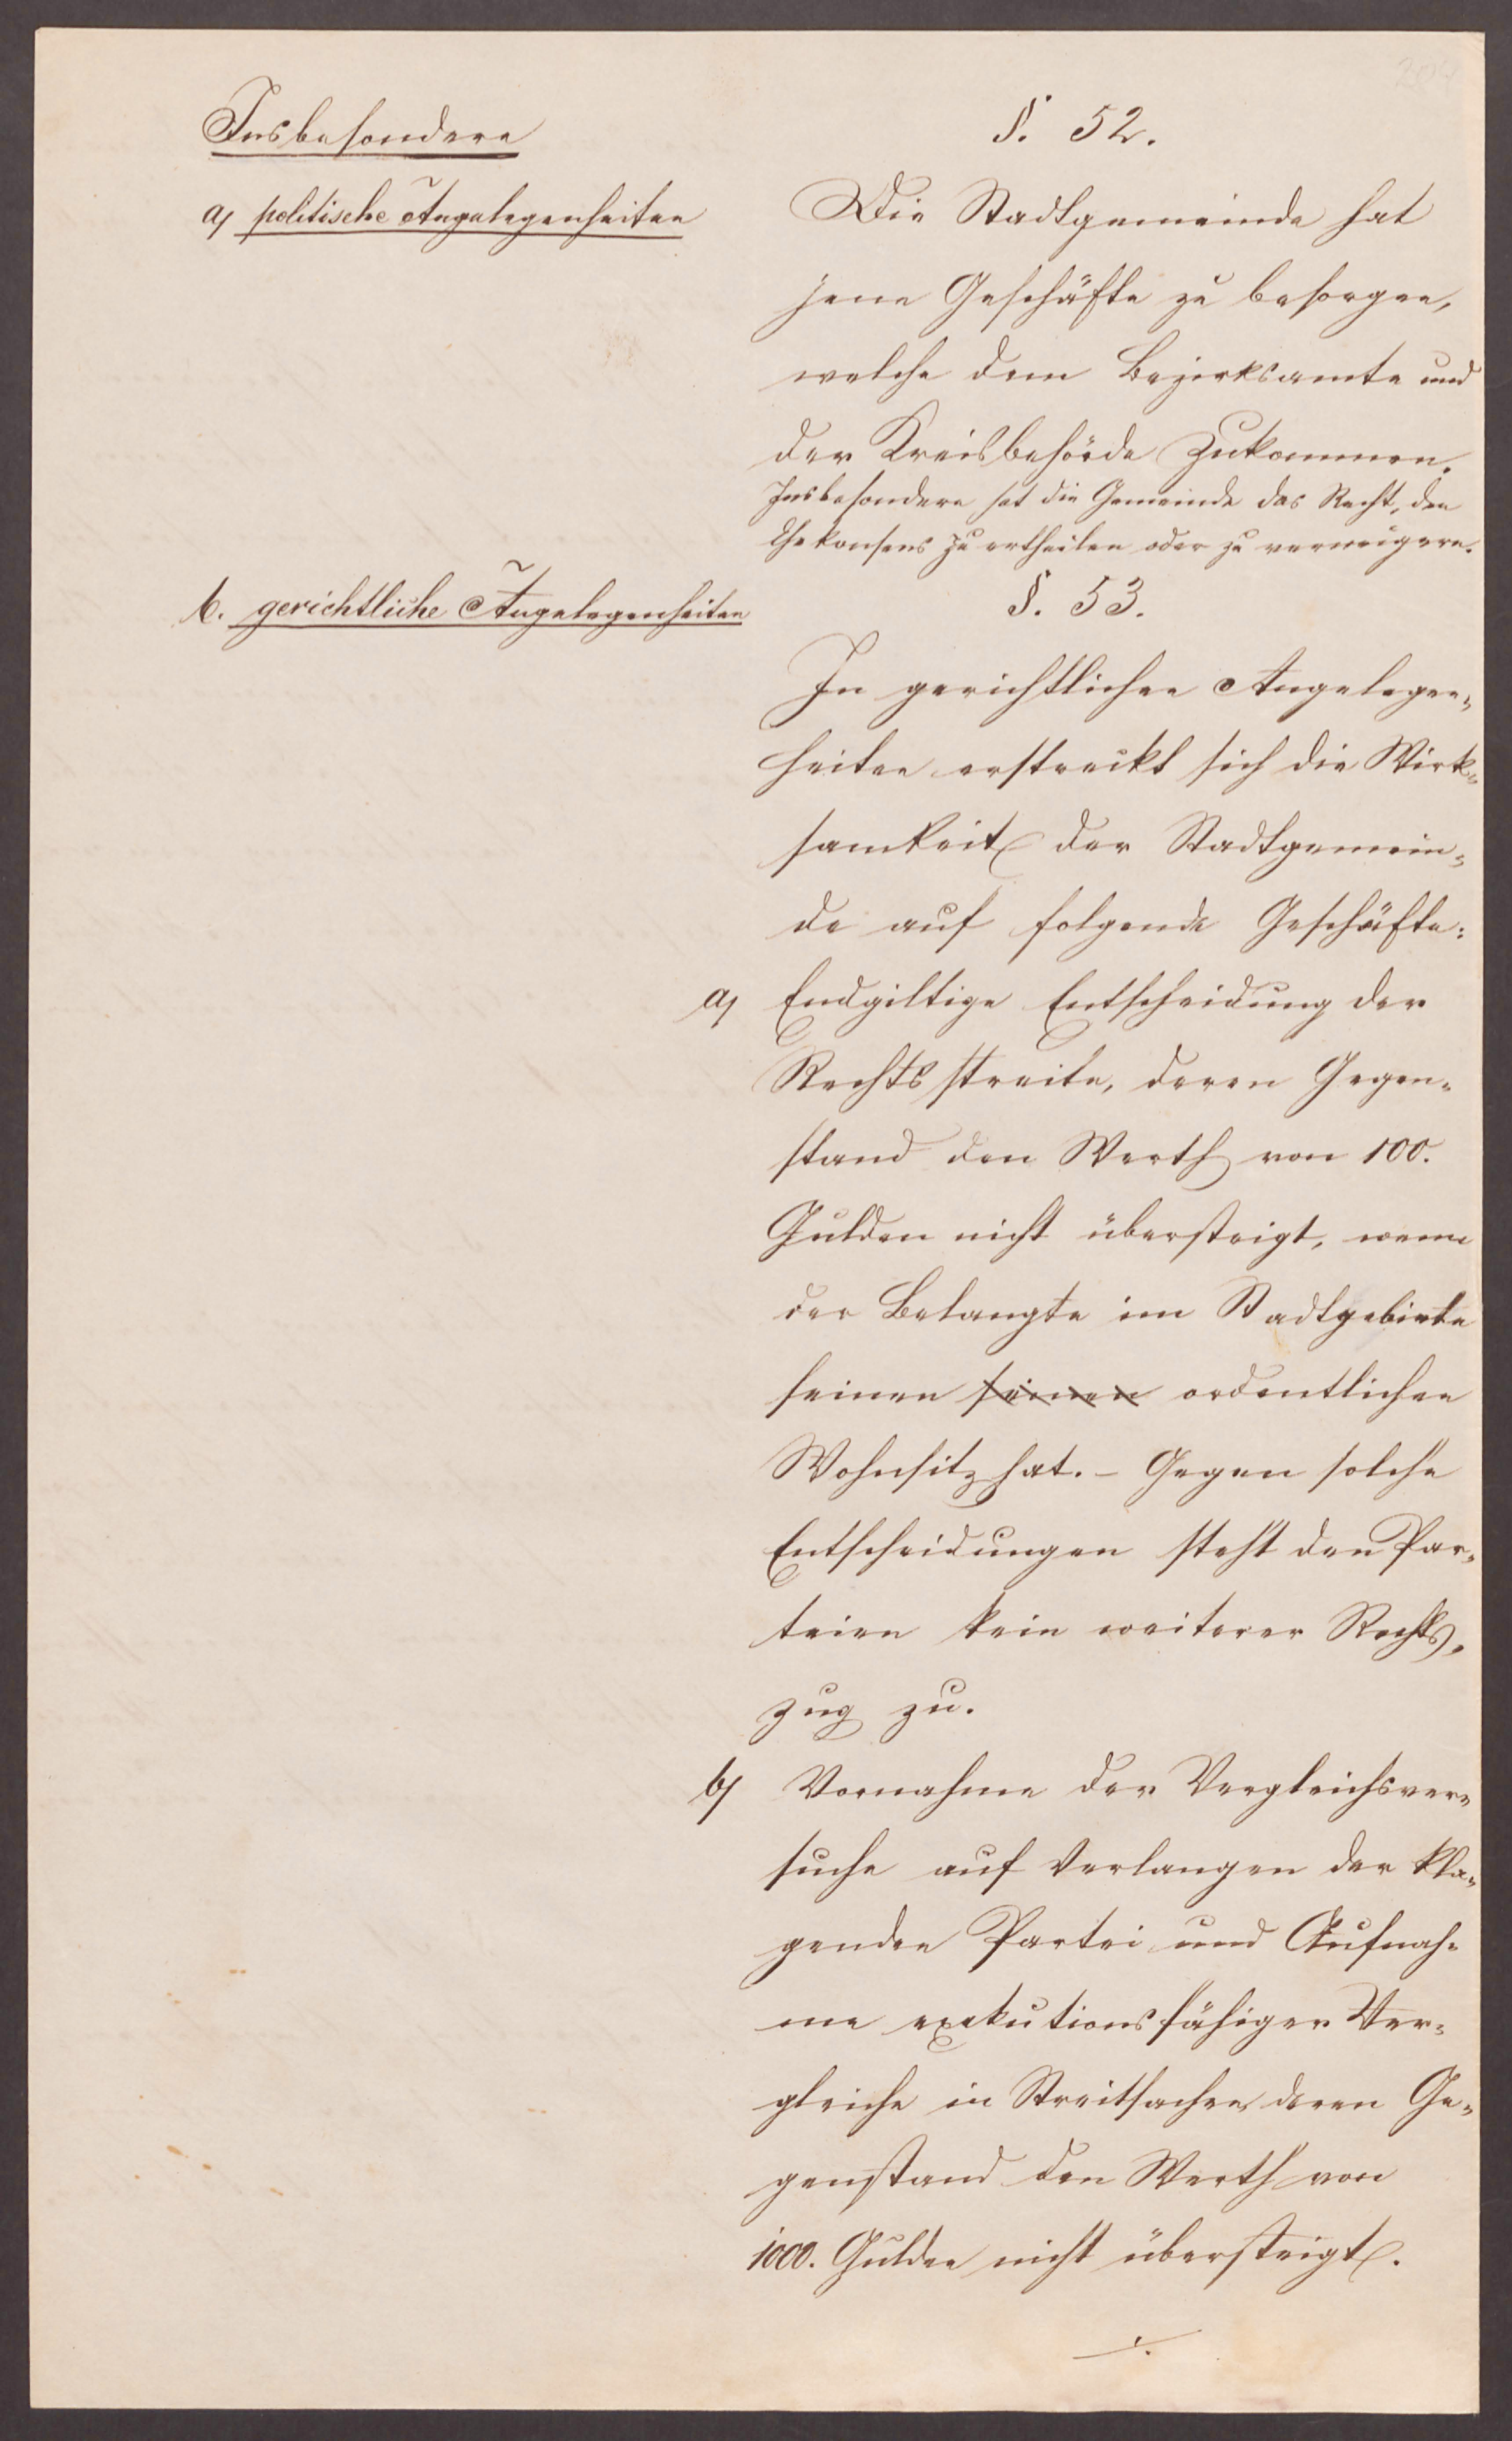 Insbesondere
a) politische Angelegenheiten
§. 52.
Die Stadtgemeinde hat
jene Geschäfte zu besorgen,
welche dem Bezirksamte und
der Kreisbehörde zukommen.
Insbesondere hat die Gemeinde das Recht, den
Ehekonsens zu ertheilen oder zu verweigern.
b. gerichtliche Angelegenheiten
§. 53.
In gerichtlichen Angelegen-
heiten erstreckt sich die Wirk-
samkeit der Stadtgemein-
de auf folgende Geschäfte:
a) Endgiltige Entscheidung der
Rechtsstreite, deren Gegen-
stand den Werth von 100.
Gulden nicht übersteigt, wenn
der Belangte im Stadtgebiete
seinen seinen ordentlichen
Wohnsitz hat. – Gegen solche
Entscheidungen steht den Par-
teien kein weiterer Rechts-
zug zu.
b) Vornahme der Vergleichsver-
suche auf Verlangen der kla-
genden Partei und Aufnah-
me exekutionsfähiger Ver-
gleiche in Streitsachen deren Ge-
genstand den Werth von
1000. Gulden nicht übersteigt.
./.